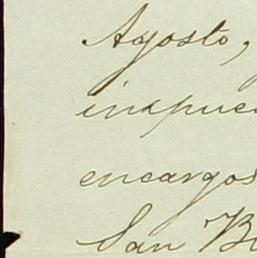 Agosto,
inspue
encargos
San B